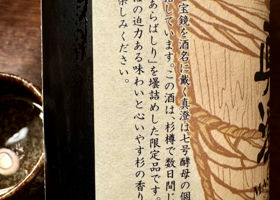 宝鏡を酒名に戴く真澄は七号酵母の個
しています。この酒は、杉樽で数日間じ
あらばしり」を壜詰めした限定品です。
の迫力ある味わいと心いやす杉の香り
楽しみください。